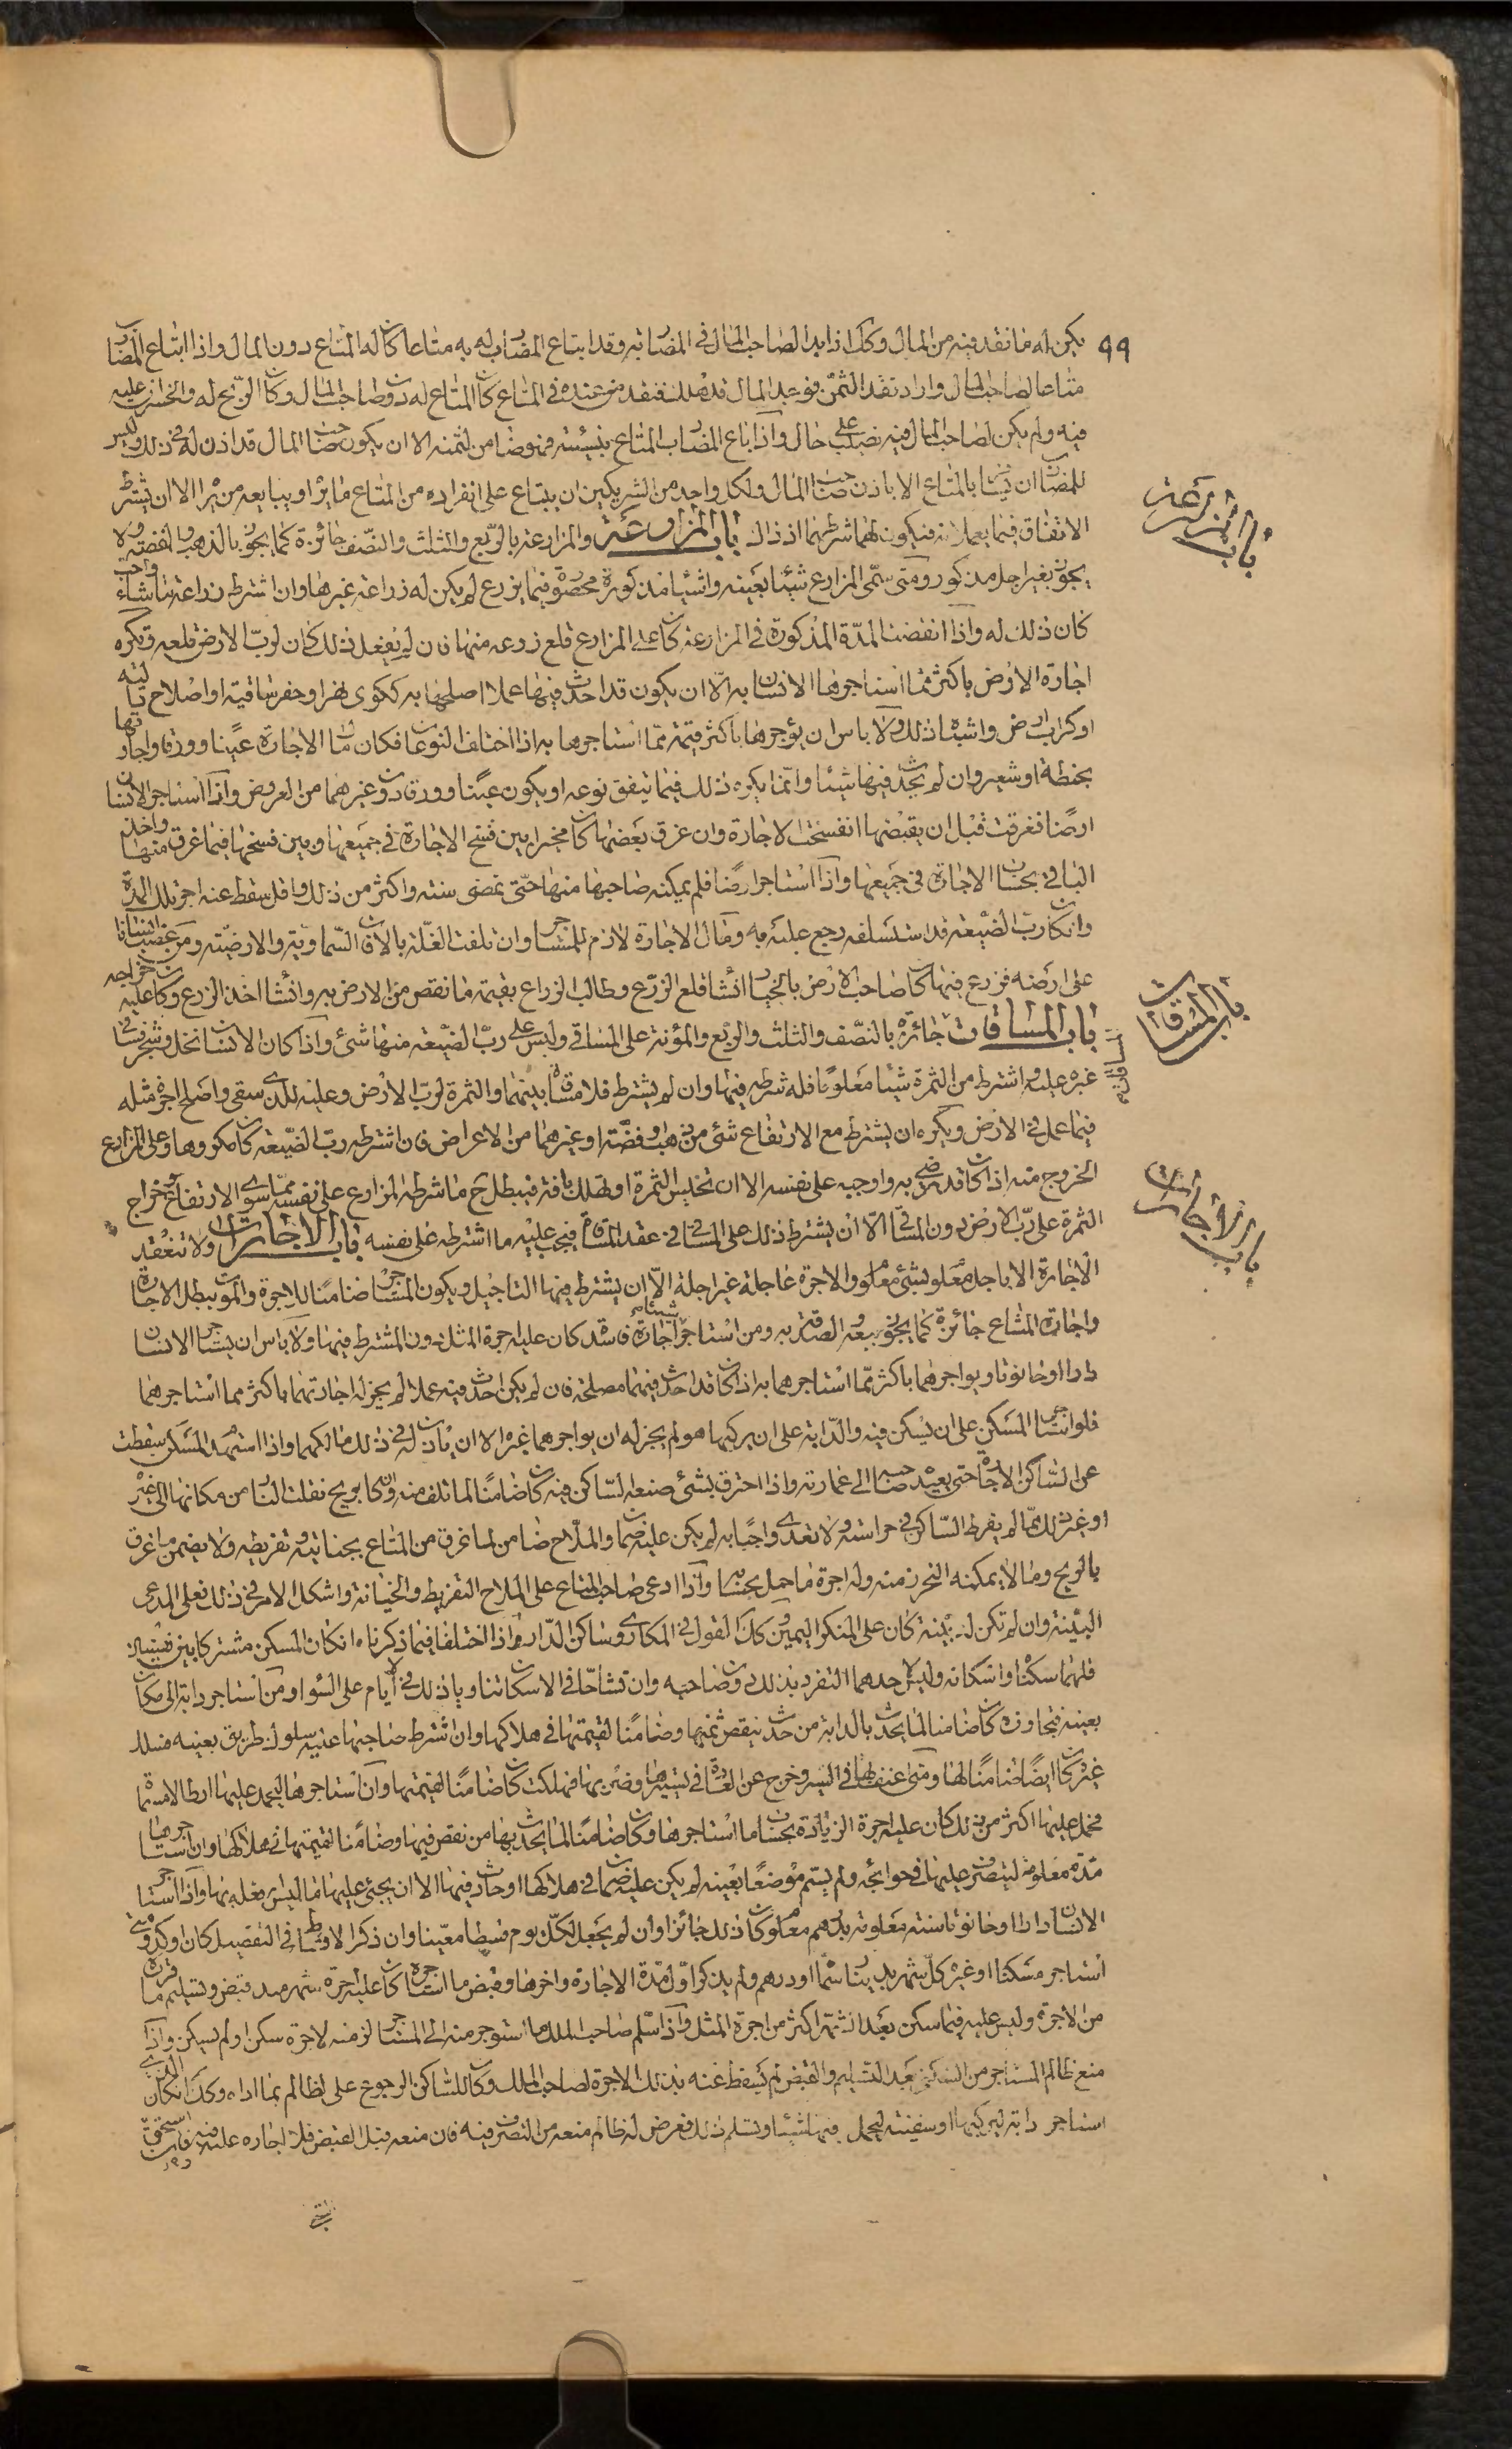 ٩٩
يكن له ما نقد فيه من المال وكك اذا بدا لصاحب المال في المضاربه وقد ابتاع المضارب له به متاعا كان له المتاع دون المال واذا ابتاع المضارب
متاعا لصاحب المال واراد نقد الثمن فوجد المال قد هلك فنقد من عنده في المتاع كان المتاع له دون صاحب المال وكان الربح له والخسران عليه
فيه ولم يكن لصاحب المال فيه نصيب على حال واذا باع المضارب المتاع بنسيئته فهو ضامن لثمنه الا ان يكون صاحب المال قد اذن له في ذلك وليس
للمضارب ان بالمتاع الا باذن صاحب المال ولكل واحد من الشريكين ان يبتاع على انفراده من المتاع ما يرا ويبايعه من يرا الا ان يشترط
الاتفاق فيما يعملانه فيكون لهما شرطهما اذ ذاك باب المزارعة والمزارعة بالربع والثلث والنصف جائزة كما يجوز بالذهب والفضة ولا
يجوز بغير اجل مذكور ومتى سمى المزارع شيئا بعينه واشيا مذكورة محصورة فيما يزرع لم يكن له زراعة غيرها وان اشترط زراعة ما شاء واحب
كان ذلك له واذا انقضت المدة المذكورة في المزارعة كان على المزارع قلع زرعه منها فان لم يفعل ذلك كان لرب الارض قلعه وتكره
اجارة الارض باكثر مما استاجرها الانسان به الا ان يكون قد احدث فيها عملا اصلحها به ككرى نهر او حفر ساقية او اصلاح
او كراب ارض واشباه ذلك ولا باس ان يؤجرها باكثر قيمة مما استاجرها به اذا اختلف النوعان فكان مال الاجارة عينا وورقا واجارتها
بحنطة او شعير وان لم يحدث فيها شيئا وانما يكره ذلك فيما يتفق نوعه او يكون عينا وورقا دون غيرهما من العروض واذا استاجر الانسان
ارضا فغرقت قبل ان يقبضها انفسخت الاجارة وان غرق بعضها كان مخيرا بين فسخ الاجارة في جميعها وبين فسخها فيما غرق منها واخذ
الباقي بحساب الاجارة في جميعها واذا استاجر ارضا فلم يمكنه صاحبها منها حتى تمضى سنة واكثر من ذلك واقل سقط عنه اجر تلك المدة
وان كان رب الضيعة قد استسلفه رجع عليه به ومال الاجارة لازم للمستاجر وان تلفت الغلة بالافات السماوية والارضية ومن غصب انسانا
على ارضه فزرع فيها كان صاحب الارض بالخيار ان شا قلع الزرع وطالب الزراع بقيمة ما نقص من الارض به وان شا اخذ الزرع وكان عليه خراجه
باب المساقات جائزة بالنصف والثلث والربع والمؤنة على المساقي وليس على رب الضيعة منها شئ واذا كان الانسان نخل وشجر فساقى
غيره عليه واشترط من الثمرة شيئا معلوما فله شرطه فيها وان لم يشترط فلا مساقاة بينهما والثمرة لرب الارض وعليه للذى سقى واصلح اجرة مثله
فيما عمل في الارض ويكره ان يشترط مع الارتفاع شئ من ذهب وفضة او غيرهما من الاعراض فان اشترطه رب الضيعة كان مكروها وعلى المزارع
الخروج منه اذا كان قد رضى به واوجبه على نفسه الا ان تخليس الثمرة او تهلك بافة فيبطل ح ما شرطه المزارع على نفسه مما سوى الارتفاع وخراج
الثمرة على رب الارض دون المساقي الا ان يشترط ذلك على المساقي في عقد المساقاة فيجب عليه ما اشترطه على نفسه باب الاجارات ولا تنعقد
الاجارة الا باجل معلوم بشئ معلوم والاجرة عاجلة غير اجلة الا ان يشترط فيها التاجيل ويكون المستاجر ضامنا للاجرة والموت يبطل الاجارة
واجارة المشاع جائزة كما يجوز بيعه والصدقة به ومن استاجر شيئا اجارة فاسدة كان عليه اجرة المثل دون المشترط فيها ولا باس ان يستاجر الانسان
دارا او حانوتا ويواجرهما باكثر مما استاجرهما به اذا كان قد احدث فيهما مصلحة فان لم يكن احدث فيه عملا لم يجز له اجارتهما باكثر مما استاجرهما
فلو استاجر المسكن على ان يسكن فيه والدابة على ان يركبها هو لم يجز له ان يواجرهما غيره الا ان ياذن له في ذلك مالكهما واذا استهدم المسكن سقطت
عن الساكن الاجارة حتى يعيد صاحبه الى عمارته واذا احترق بشئ صنعه الساكن فيه كان ضامنا لما تلف منه وان كان بريح نقلت النار من مكانها الى غير
او غير ذلك مما لم يفرط الساكن في حراسته ولا تعدى واجبا به لم يكن عليه ضمان والملاح ضامن لما غرق من المتاع بجنايته وتفريطه ولا يضمن ما غرق
بالريح وما لا يمكنه التحرز منه وله اجرة ما حمل بحسابه واذا ادعى صاحب المتاع على الملاح التفريط والخيانة واشكل الامر في ذلك فعلى المدعى
البينة وان لم تكن له بينة كان على المنكر اليمين وكذا القول في المكارى وساكن الدار واذا اختلفا فيما ذكرناه وان كان المسكن مشتركا بين نفسين
فلهما سكناه واسكانه وليس لاحدهما التفرد بذلك دون صاحبه وان تشاحا في الاسكان تناوباه ذلك في ايام على السوا ومن استاجر دابة الى مكان
بعينه فتجاوزه كان ضامنا لما يحدث بالدابة من حدث ينقص ثمنها وضامنا لقيمتها في هلاكها وان شرط صاحبها عليه سلوك طريق بعينه فسلك
غيره كان ايضا ضامنا لها ومتى عنف بها في السير وخرج عن العادة في تسييرها وضربها فهلكت كان ضامنا لقيمتها وان استاجرها ليحمل عليها ارطالا مسماة
فحمل عليها اكثر من ذلك كان عليه اجرة الزيادة بحساب ما استاجرها وكان ضامنا لما يحدث بها من نقص فيها وضامنا لقيمتها في هلاكها وان استاجرها
مدة معلومة ليتصرف عليها في حوائجه ولم يسم موضعا بعينه لم يكن عليه ضمان في هلاكها او حادث فيها الا ان يجنى عليها ما ليس فعله بها واذا استاجر
الانسان دارا او حانوتا سنة معلومة بدرهم معلوم كان ذلك جائزا وان لم يجعل لكل يوم قسطا معينا وان ذكر الاوسط في التفصيل كان اوكد ومتى
استاجر مسكنا او غيره كل شهر بدينار مثلا او درهم ولم يذكر اول مدة الاجارة واخرها وقبض ما استاجره كان عليه اجرة شهر ... قبض وتسليم ما
من الاجرة وليس عليه فيما سكن بعد الشهر اكثر من اجرة المثل واذا سلم صاحب الملك ما استوجر منه الى المستاجر لزمته الاجرة سكن او لم يسكن واذا
منع ظالم المستاجر من السكنى بعد التسليم والقبض لم يسقط عنه بذلك الاجرة لصاحب الملك وكان للساكن الرجوع على الظالم بما اداه وكك ان كان الذى
استاجر دابة ليركبها او سفينة ليحمل فيها شيئا وتسلم ذلك فعرض له ظالم منعه من التصرف فيه فان منعه قبل القبض فلا اجاره عليه فيه
باب المزارعة
باب المساقات
باب الاجارات